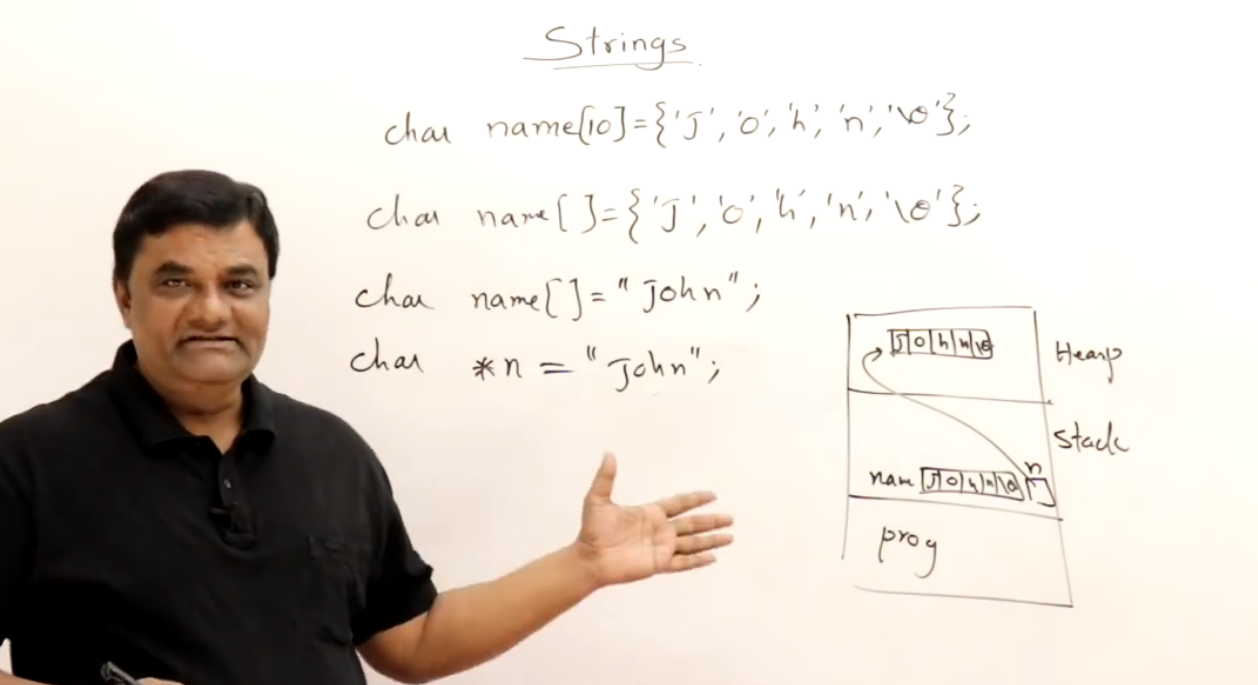 Strings
char name[10]={'J','o','h','n','\0'};
char name[ ]={'J','o','h','n','\0'};
char name[ ]="John";
char *n = "John";
J o h n \0
Heap
stack
n
name J o h n \0
prog